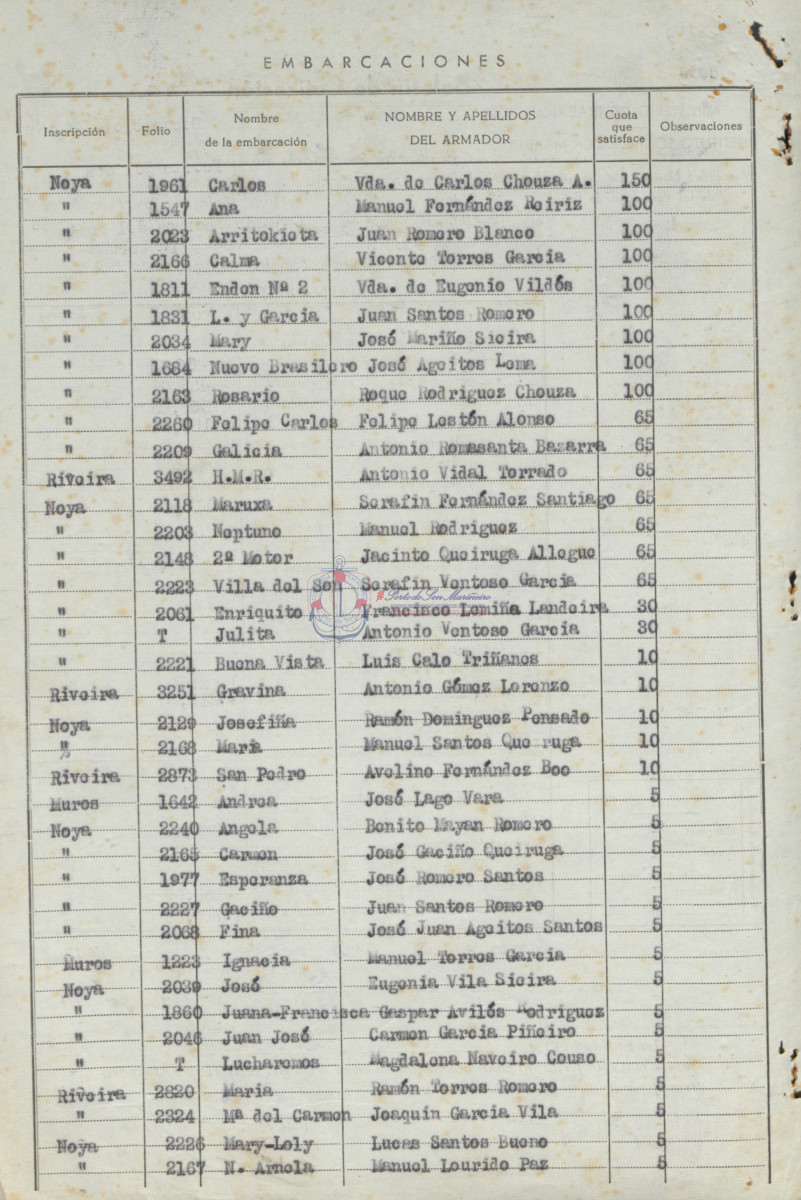 EMBARCACIONES
Inscripción Folio Nombre de la embarcación NOMBRE Y APELLIDOS DEL ARMADOR Cuota que satisface Observaciones
Noya 1961 Carlos Vda. de Carlos Chouza A. 150
" 1547 Ana Manuel Fernández Reiriz 100
" 2023 Arritokieta Juan Romero Blanco 100
" 2166 Calma Vicente Torres Garcia 100
" 1811 Endon Nº 2 Vda. de Eugenio Vildés 100
" 1831 L. y Garcia Juan Santos Romero 100
" 2034 Mary José Mariño Sieira 100
" 1684 Nuevo Brasilero José Ageitos Lema 100
" 2163 Rosario Roque Rodriguez Chouza 100
" 2260 Felipe Carlos Felipe Lestón Alonso 65
" 2209 Galicia Antonio Romasanta Bazarra 65
Riveira 3492 H.M.R. Antonio Vidal Torrado 65
Noya 2118 Maruxa Serafin Fernández Santiago 65
" 2203 Neptuno Manuel Rodriguez 65
" 2148 2ª Motor Jacinto Queiruga Allegue 65
" 2223 Villa del Son Serafin Ventoso Garcia 65
# Porto do Son Mariñeiro
" 2061 Enriquito Francisco Lomiña Landeira 30
" T Julita Antonio Ventoso Garcia 30
" 2221 Buena Vista Luis Calo Triñanes 10
Riveira 3251 Gravina Antonio Gómez Lorenzo 10
Noya 2129 Josefiña Ramón Dominguez Pensado 10
" 2168 Maria Manuel Santos Que ruga 10
Riveira 2873 San Pedro Avelino Fernández Boo 10
Muros 1642 Andrea José Lago Vara 5
Noya 2240 Angela Benito Mayan Romero 5
" 2165 Carmen José Gaciño Queiruga 5
" 1977 Esperanza José Romero Santos 5
" 2227 Gaciño Juan Santos Romero 5
" 2068 Fina José Juan Ageitos Santos 5
Muros 1223 Ignacia Manuel Torres Garcia 5
Noya 2039 José Eugenia Vila Sieira 5
" 1860 Juana-Francisca Gaspar Avilés Rodriguez 5
" 2046 Juan José Carmen Garcia Piñeiro 5
" T Lucharemos Magdalena Naveiro Couso 5
Riveira 2820 Maria Ramón Torres Romero 5
" 2324 Mª del Carmen Joaquin Garcia Vila 5
Noya 2226 Mary-Loly Lucas Santos Bueno 5
" 2167 N. Arnela Manuel Lourido Paz 5